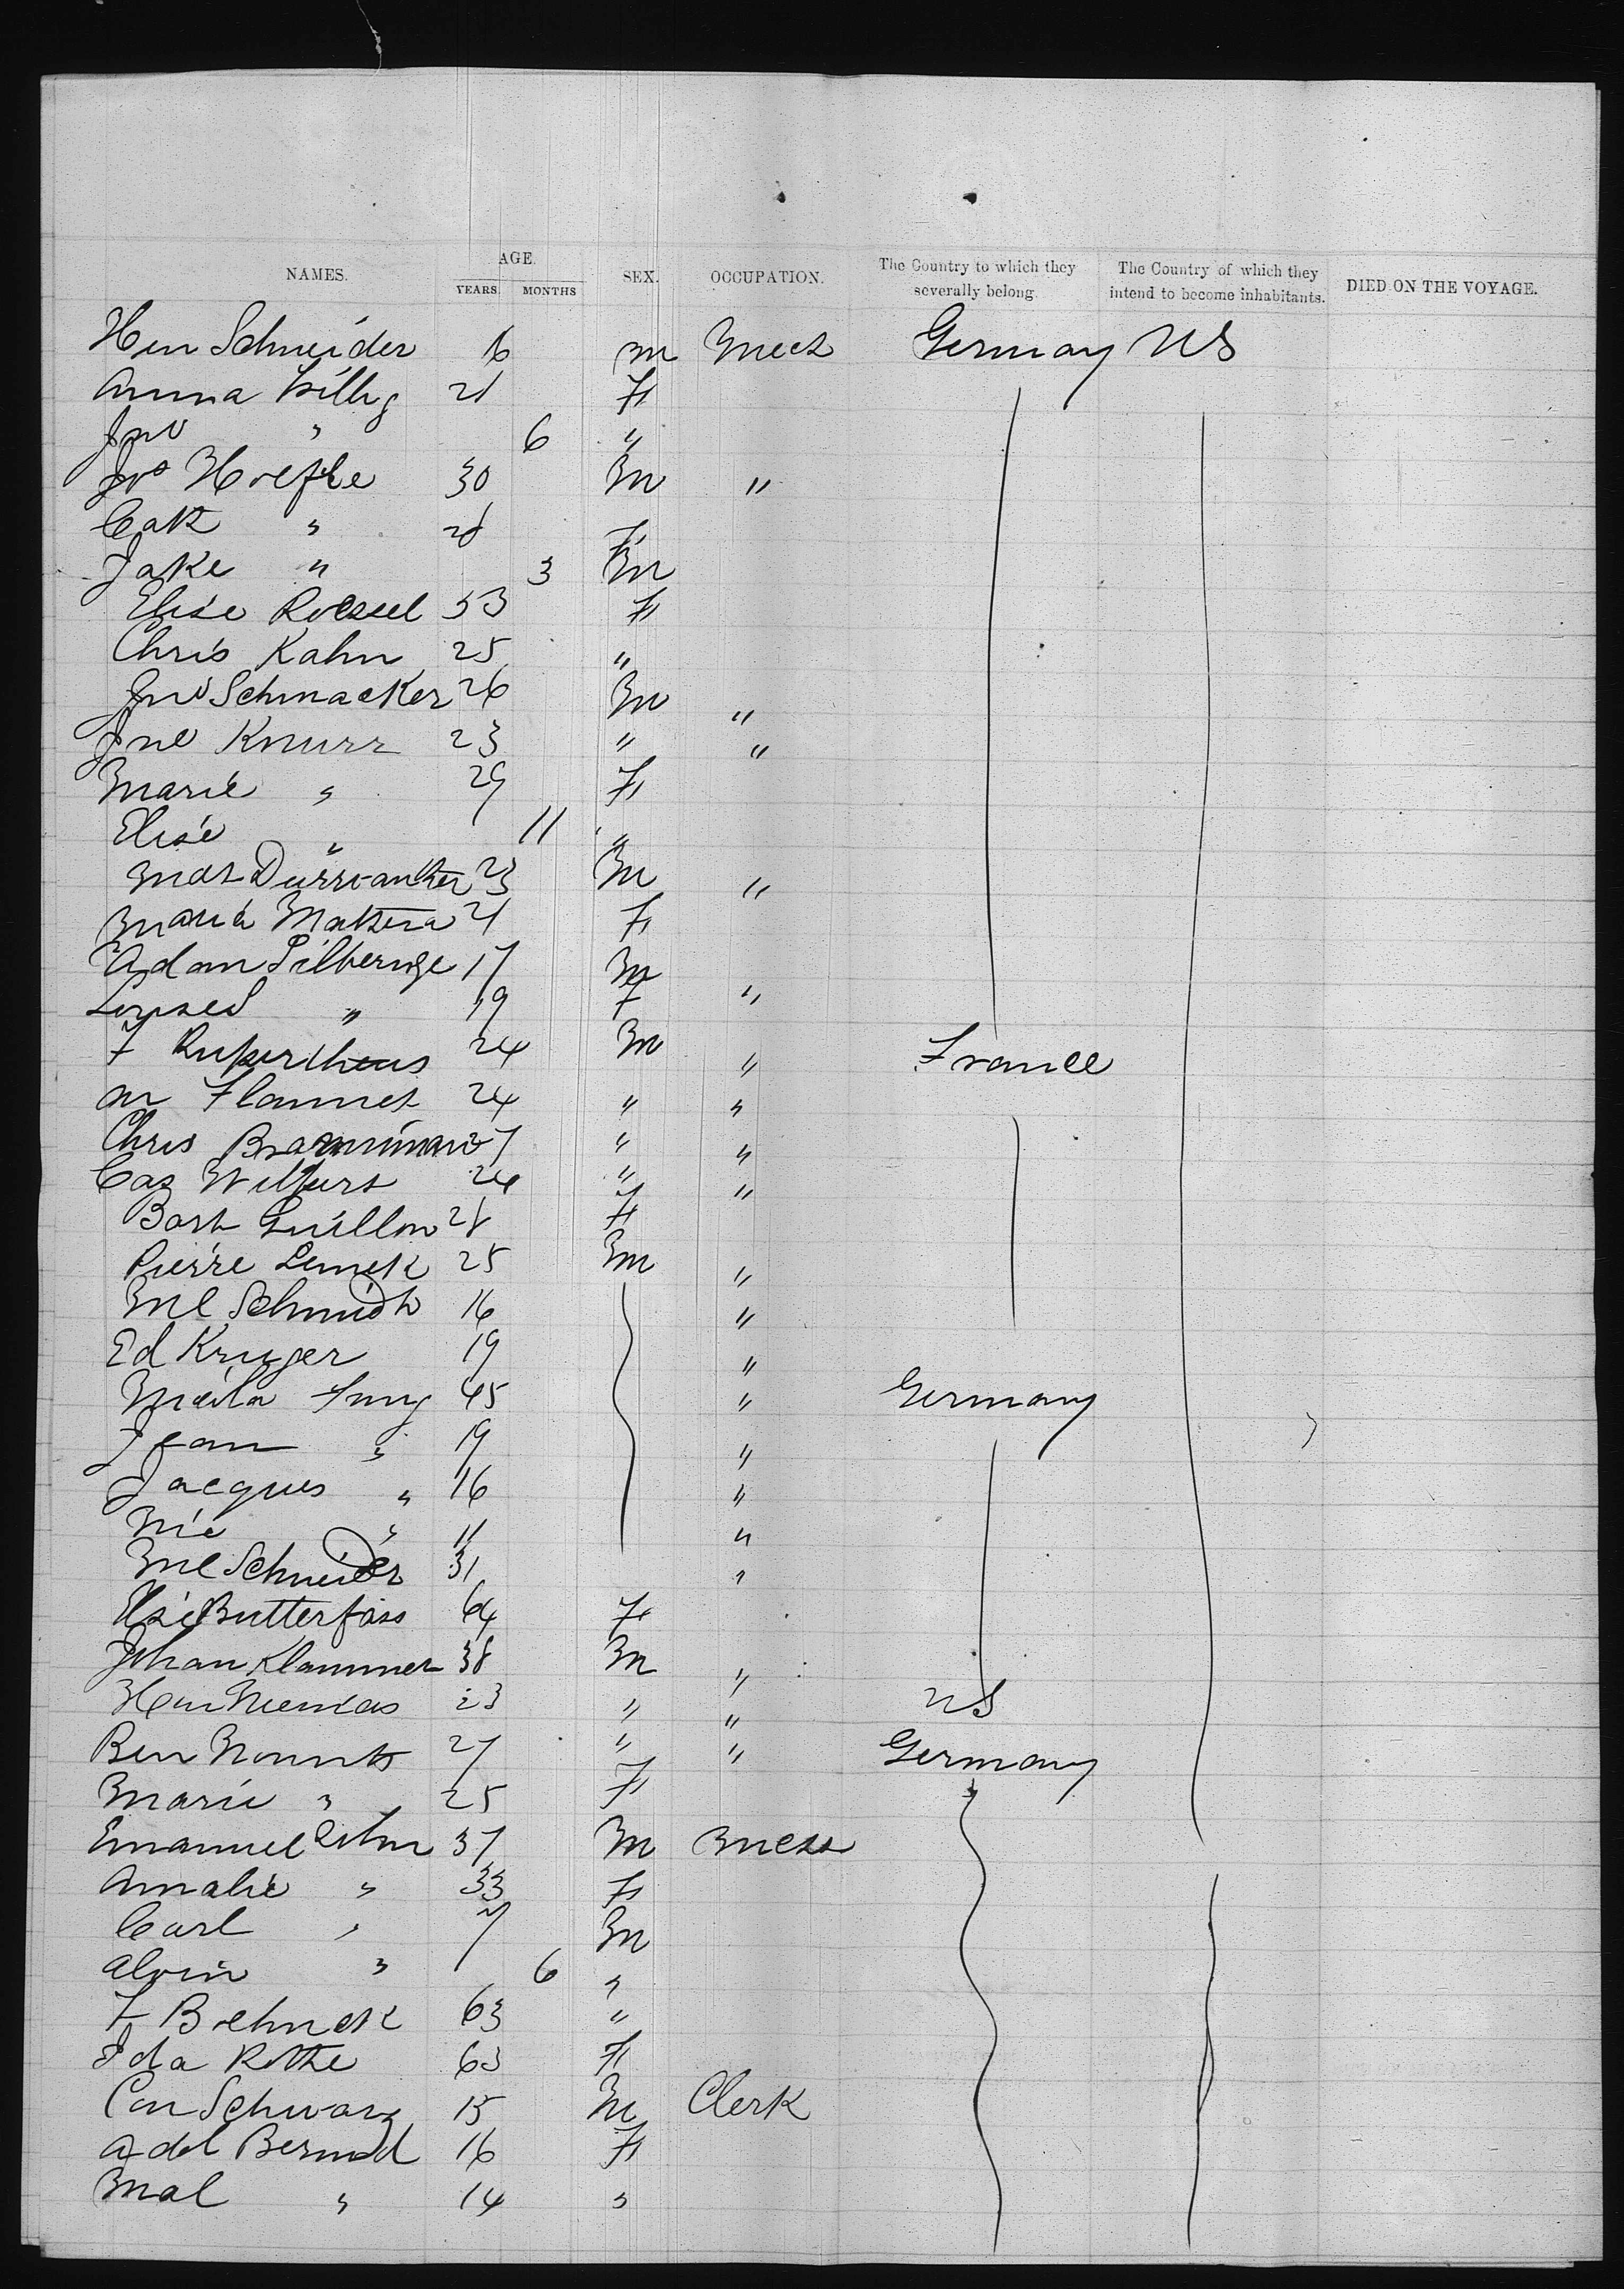 NAMES. AGE. YEARS. MONTHS SEX. OCCUPATION. The Country to which they severally belong. The Country of which they intend to become inhabitants. DIED ON THE VOYAGE.
Hen Schneider 16 m Mech Germany US
Anna Willig 21 F
Jno " 6 "
Jno Hoefle 30 M "
Cath " 28 F
Jake " 3 M
Elise Roessel 53 F
Chris Kahn 25 "
Jno Schmacker 26 M "
Jno Knurr 23 " "
Marie " 29 F
Elise " 11 "
23 M "
Maria 21 F
Adam 17 M
Louise " 19 F "
F 24 M " France
M Flammet 24 " "
Chris 27 " "
Cas 24 " "
Guillon 28 F
Pierre 25 M "
Ml Schmidt 16 "
Ed Kruger 19 "
Jung 45 " Germany
Jean " 19 "
Jacques " 16 "
Nic " 11 "
Ml Schneider 31 "
Elise Butterfass 64 F
Johan Klammer 38 M "
Hen 23 " " US
Ben 27 " " Germany
Marie " 25 F
Emanuel 37 M Mech
Amalie " 33 F
Carl " 7 M
Alvin " 6 "
F 63 "
Ida Rothe 63 F
Con Schwarz 15 M Clerk
Adel 16 F
Mal " 14 "